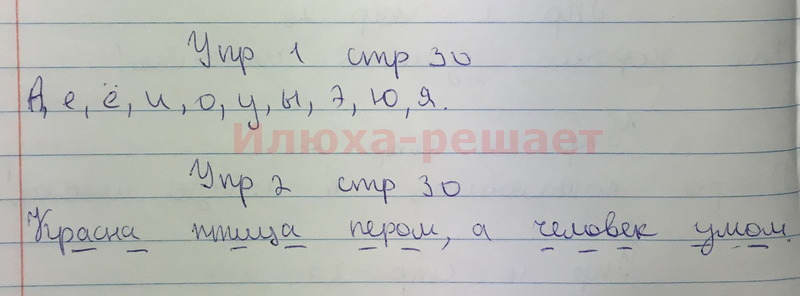 Упр 1 стр 30
А, е, ё, и, о, у, ы, э, ю, я.
Илюха-решает
Упр 2 стр 30
Красна птица пером, а человек умом.